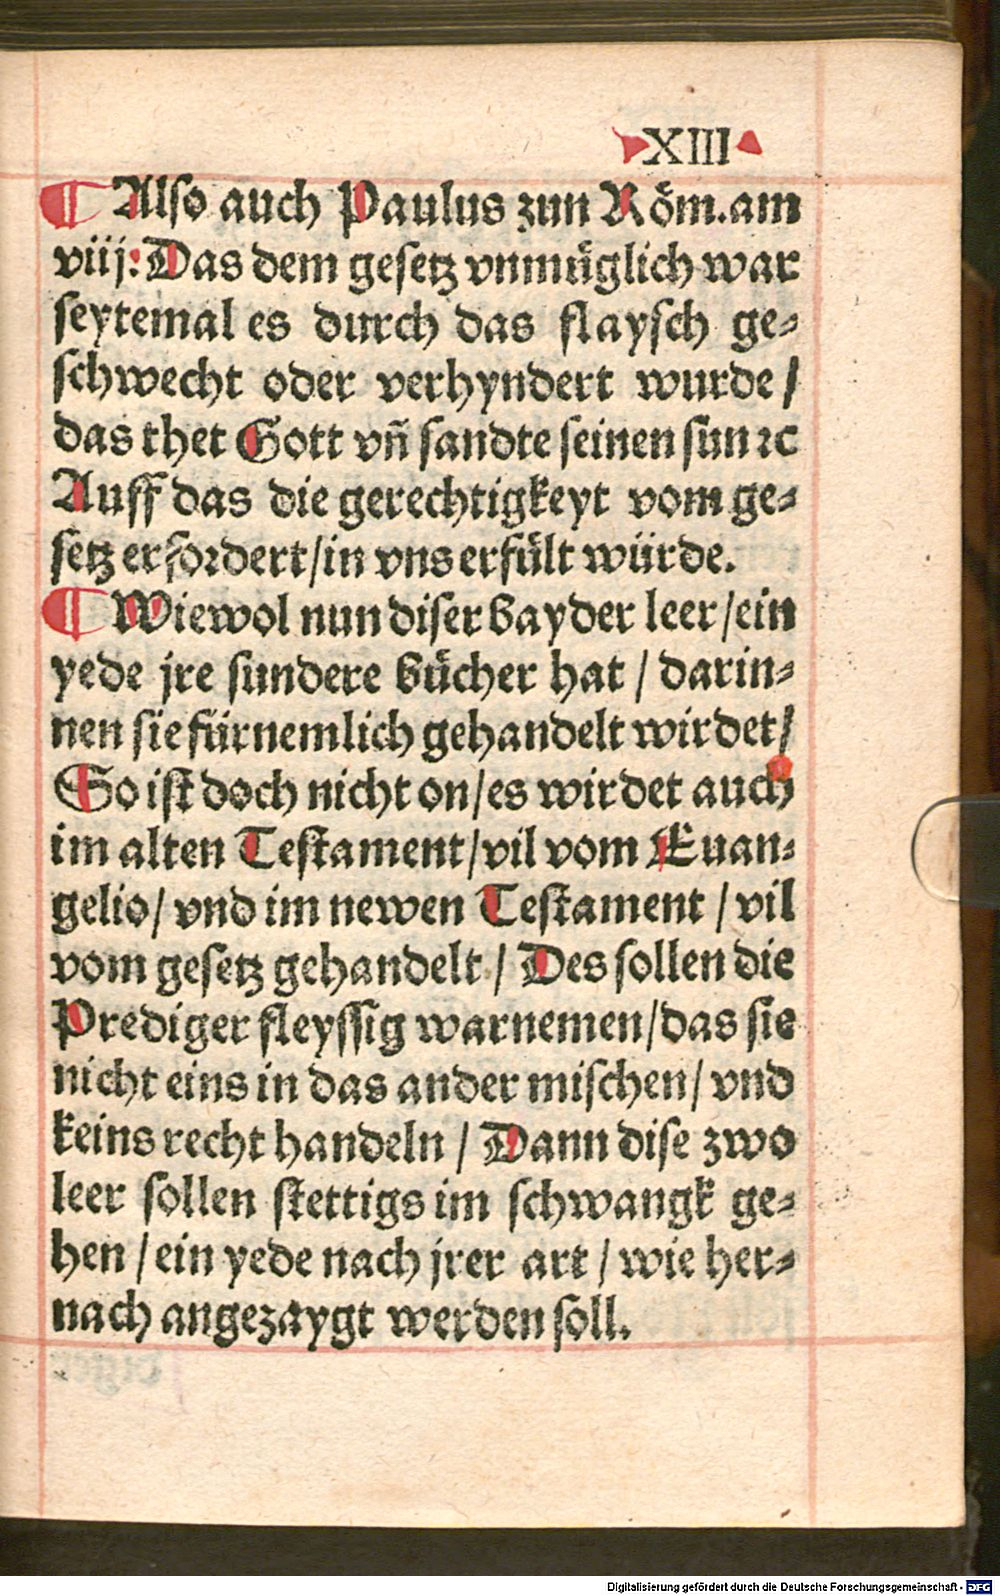 XIII
¶ Also auch Paulus zun Röm. am
viij: Das dem gesetz vnmüglich war
seytemal es durch das flaysch ge⸗
schwecht oder verhyndert wurde /
das thet Gott vñ sandte seinen sun ꝛc
Auff das die gerechtigkeyt vom ge⸗
setz erfordert / in vns erfült würde.
¶ Wiewol nun diser bayder leer / ein
yede jre sundere bücher hat / darin⸗
nen sie fürnemlich gehandelt wirdet /
So ist doch nicht on / es wirdet auch
im alten Testament / vil vom Euan⸗
gelio / vnd im newen Testament / vil
vom gesetz gehandelt / Des sollen die
Prediger fleyssig warnemen / das sie
nicht eins in das ander mischen / vnd
keins recht handeln / Dann dise zwo
leer sollen stettigs im schwangk ge⸗
hen / ein yede nach jrer art / wie her⸗
nach angezaygt werden soll.
Digitalisierung gefördert durch die Deutsche Forschungsgemeinschaft - DFG